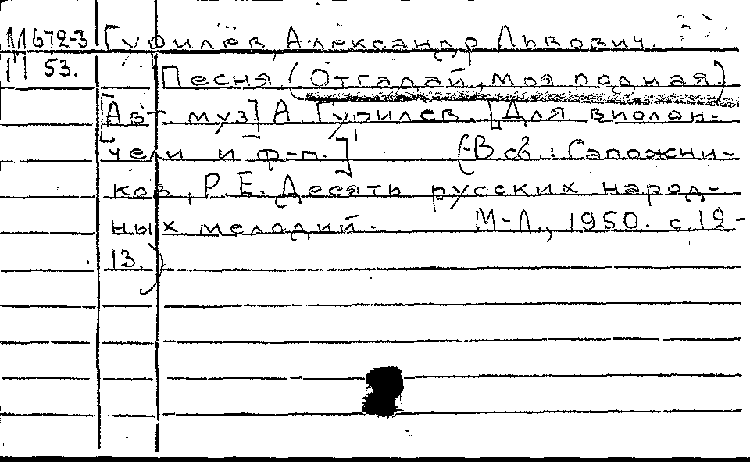 М 672-3 Гурилев, Александр Львович.
П 53. Песня (Отгадай, моя родная)
[Авт. муз] А Гурилев. [Для виолон-
чели и ф-п.] (В сб.: Сапожни-
ков, Р.Е. Десять русских народ-
ных мелодий. М-Л., 1950. с.12-
13.)